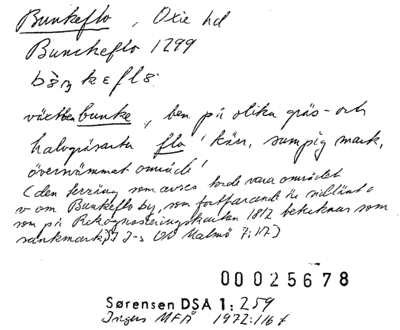 Bunkeflo, Oxie hd
Bunckeflo 1299
växtben bunke, ben på olika gräs- och
halvgräsarter flo 'kärr, sumpig mark,
översvämmat område'
(den terräng som avses torde vara området
v om Bunkeflo by, som fortfarande är sidlänt o
som på Rekognosceringskartan 1812 betecknas som
sankmark)
00025678
Sørensen DSA 1: 259
Ingers MFÅ 1972:116 f